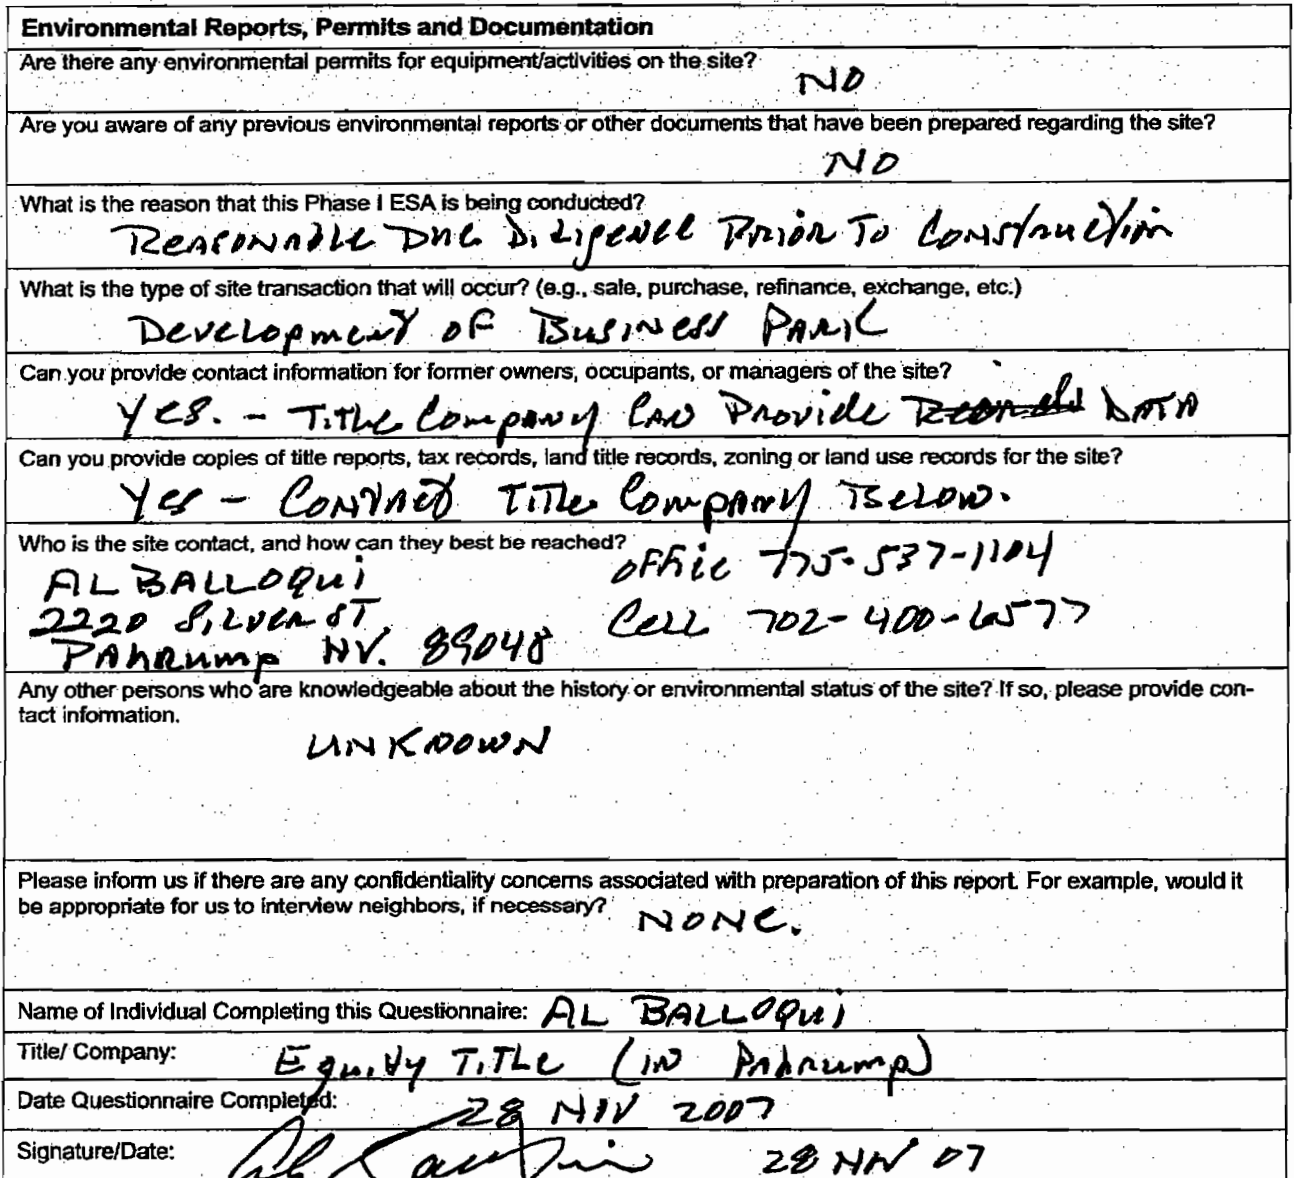 Environmental Reports, Permits and Documentation
Are there any environmental permits for equipment/activities on the site?
NO
Are you aware of any previous environmental reports or other documents that have been prepared regarding the site?
NO
What is the reason that this Phase I ESA is being conducted?
Reasonable Due Diligence Prior To Construction
What is the type of site transaction that will occur? (e.g., sale, purchase, refinance, exchange, etc.)
Development of Business Park
Can you provide contact information for former owners, occupants, or managers of the site?
Yes. - Title Company Can Provide Records DATA
Can you provide copies of title reports, tax records, land title records, zoning or land use records for the site?
Yes - Contact Title Company Below.
Who is the site contact, and how can they best be reached?
office 775-537-1104
AL BALLOQUI
2220 Silver ST.
Cell 702-400-6577
PAhRump NV. 89048
Any other persons who are knowledgeable about the history or environmental status of the site? If so, please provide con-
tact information.
UNKNOWN
Please inform us if there are any confidentiality concerns associated with preparation of this report. For example, would it
be appropriate for us to interview neighbors, if necessary? NONE.
Name of Individual Completing this Questionnaire: AL BALLOQUI
Title/ Company: Equity Title (IN Pahrump)
Date Questionnaire Completed: 28 NOV 2007
Signature/Date: 28 NOV 07